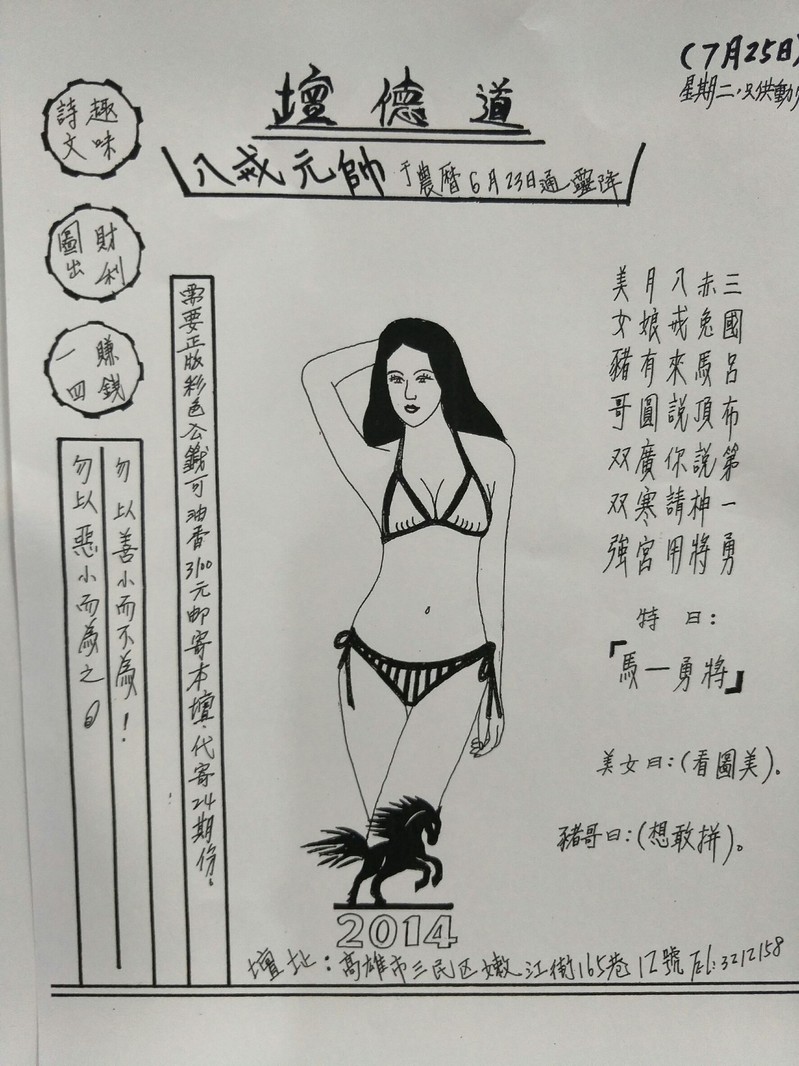 (7月25日)
星期二，只供動
道德壇
八戒元帥于農曆6月23日通靈降
趣味詩文
財利圖出
賺錢一四
三國呂布第一勇
赤兔馬頂說神將
八戒來說你請用
月娘有圓廣寒宮
美女豬哥双双強
特曰：
「馬一勇將」
美女曰：(看圖美)。
豬哥曰：(想敢拼)。
需要正版彩色公鐵可油香3100元邮寄本壇，代寄24期份。
勿以善小而不為！
勿以惡小而為之
2014
壇址：高雄市三民区嫩江街165巷12號 Tel:3212158